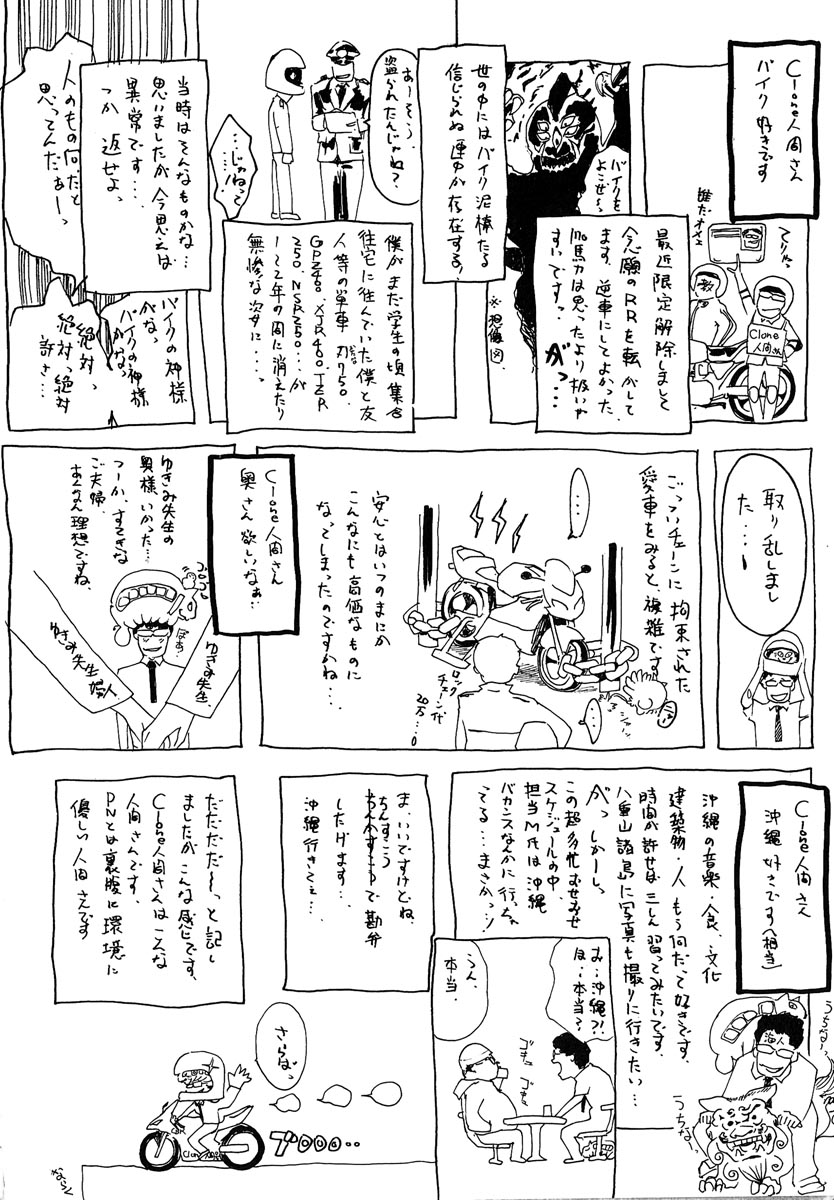 Clone人間さん
バイク好きです
てりゃっ
誰だオメェ
教
Clone
人間さん
最近限定解除しまして
念願のRRを転がして
ます。逆車にしてよかった。
馬力は思ったより扱いや
すいですっ。
がっ…
バイクを
よこせ〜っ
※想像図
世の中にはバイク泥棒たる
信じられぬ連中が存在する!
僕がまだ学生の頃集合
住宅に住んでいた僕と友
人等の単車 刀750、
GPZ400、XJR400、TZR
250、NSR250…が
1〜2年の間に消えたり
無惨な姿に…っ
あーそう
盗られたんじゃね?
…じゃねって
…
当時はそんなものかな…
思いましたが今思えば
異常です…
つか返せよっ
人のもの何だと
思ってんだぁーっ
バイクの神様
がなっ
バイクの神様
がなっ
絶対っ
絶対っ絶対
許さ…
取り乱しまし
た…!
ごっついチェーンに拘束された
愛車をみると、複雑です
…
安心とはいつのまにか
こんなにも高価なものに
なってしまったのですかね…
ロック
チェーン代
20万…!
…
Clone人間さん
奥さん欲しいなぁ…
ゆきみ先生の
奥様、いかった…
つーか、すてきな
ご夫婦
あんなん理想ですね。
ぽぁ…
ゆきみ先生
ゆきみ先生婦人
Clone人間さん
沖縄好きです(相当)
沖縄の音楽・食、文化
建築物・人 もう何だって好きです。
時間が許せば三しん習ってみたいです。
八重山諸島に写真も撮りに行きたい…
がっ しかーしっ
この超多忙むせみせ
スケジュールの中、
担当M氏は沖縄
バカンスなんかに行っちゃ
てる…まさかっ…!
うちなーっ
海人
うちなー
お…沖縄?!
ほ…本当?
うん、
本当。
ま、いいですけどね、
ちんすこうで勘弁
したげます…
沖縄行きてぇ…
だだだだ〜っと記し
ましたがこんな感じです、
Clone人間さんはこんな
人間さんです。
PNとは裏腹に環境に
優しい人間さんです
さらばっ
ブロロロ・・